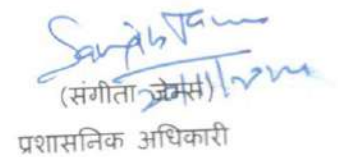 (संगीता जेम्स)
प्रशासनिक अधिकारी